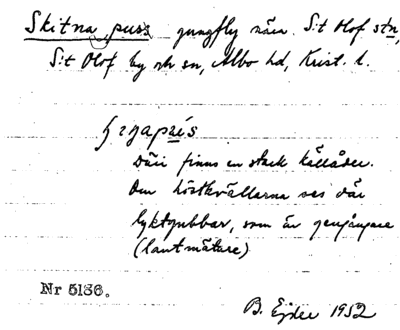 Skitna puss gungfly nära S:t Olof stn,
S:t Olof by och sn, Albo hd, Krist. l.
Däri finns en stark källåder.
Om höstkvällarna ses där
lyktgubbar, som är gengångare
(lantmätare)
Nr 5136.
B. Ejder 1952